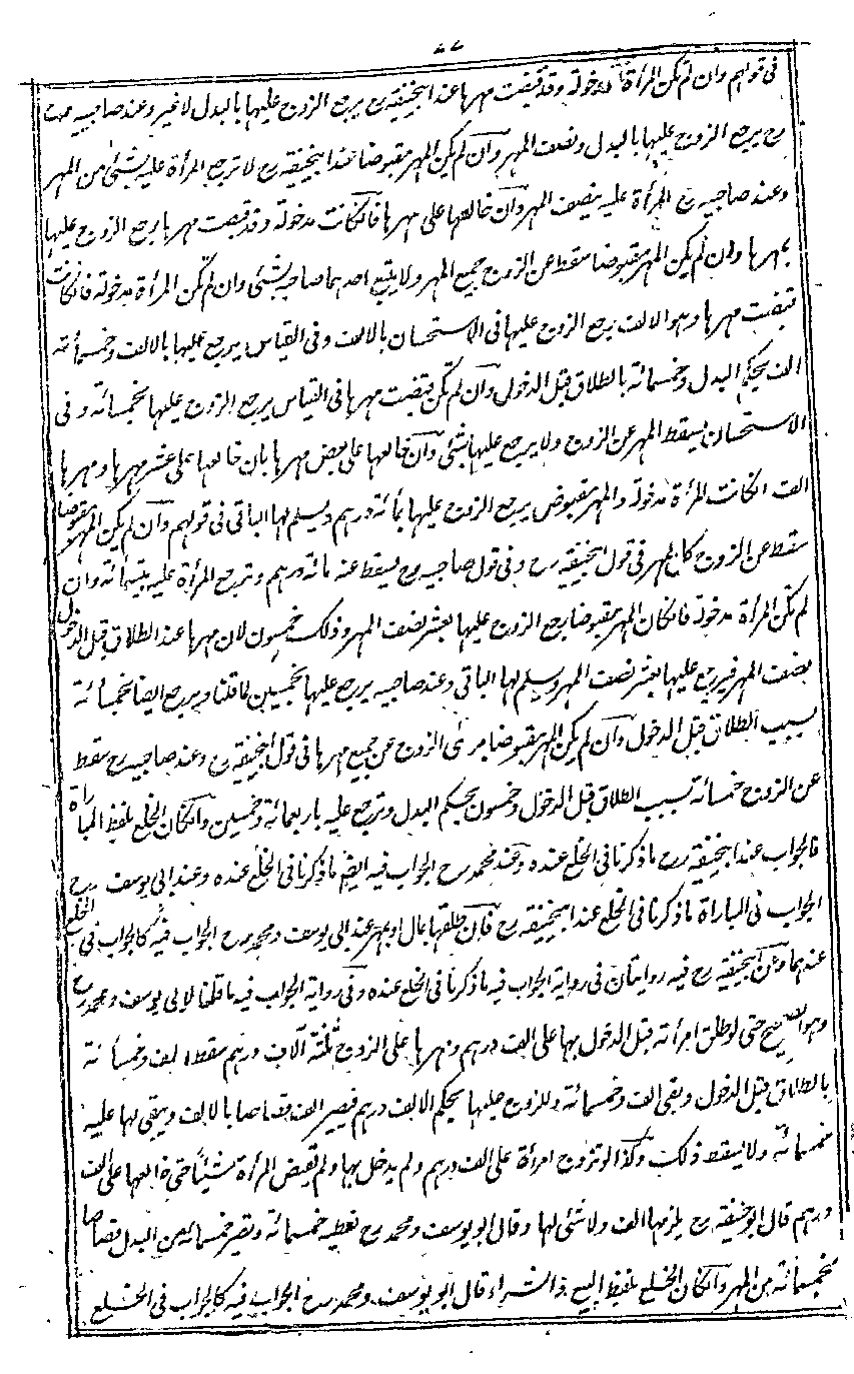 فى قولهم وان لم تكن المرأة مدخولة وقد قبضت مهرها عند ابيحنيفة رح يرجع الزوج عليها بالبدل لاغير وعند صاحبيه
رح يرجع الزوج عليها بالبدل ونصف المهر وان لم يكن المهر مقبوضا عند ابيحنيفة رح لا ترجع المرأة عليه بشئ من المهر
وعند صاحبيه رح المرأة عليه بنصف المهر وان خالعها على مهرها فانكانت مدخولة وقد قبضت مهرها رجع الزوج عليها
بمهرها وان لم يكن المهر مقبوضا سقط عن الزوج جميع المهر ولا يتبع احدهما صاحبه بشئ وان لم تكن المرأة مدخولة فانكانت
قبضت مهرها وهو الالف رجع الزوج عليها فى الاستحسان بالالف وفى القياس يرجع عليها بالالف وخمسمائة
الف بحكم البدل وخمسمائة بالطلاق قبل الدخول وان لم تكن قبضت مهرها فى القياس يرجع الزوج عليها بخمسمائة وفى
الاستحسان يسقط المهر عن الزوج ولا يرجع عليها بشئ وان خالعها على بعض مهرها بان خالعها على عشر مهرها ومهرها
الف انكانت المرأة مدخولة والمهر مقبوض يرجع الزوج عليها بمائة درهم ويسلم لها الباقى فى قولهم وان لم يكن المهر مقبوضا
سقط عن الزوج كل المهر فى قول ابيحنيفة رح وفى قول صاحبيه رح يسقط عنه مائة درهم وترجع المرأة عليه بتسعمائة وان
لم تكن المرأة مدخولة فانكان المهر مقبوضا رجع الزوج عليها بعشر نصف المهر وذلك خمسون لان مهرها عند الطلاق قبل الدخول
نصف المهر فيرجع عليها بعشر نصف المهر ويسلم لها الباقى وعند صاحبيه يرجع عليها بخمسين لما قلنا ويرجع ايضا بخمسمائة
بسبب الطلاق قبل الدخول وان لم يكن المهر مقبوضا برئ الزوج عن جميع مهرها فى قول ابيحنيفة رح وعند صاحبيه رح سقط
عن الزوج خمسمائة بسبب الطلاق قبل الدخول وخمسون بحكم البدل وترجع عليه باربعمائة وخمسين وانكان الخلع بلفظ المباراة
فالجواب عند ابيحنيفة رح ما ذكرنا فى الخلع عنده وعند محمد رح الجواب فيه ايضا ما ذكرنا فى الخلع عنده وعند ابى يوسف رح
الجواب فى المباراة ما ذكرنا فى الخلع عند ابيحنيفة رح فان طلقها بمال او بمهر عند ابى يوسف ومحمد رح الجواب فيه كالجواب فى الخلع
عندهما وعن ابيحنيفة رح فيه روايتان فى رواية الجواب فيه ما ذكرنا فى الخلع عنده وفى رواية الجواب فيه ما قلنا لابى يوسف ومحمد رح
وهو الصحيح حتى لو طلق امرأته قبل الدخول بها على الف درهم ومهرها على الزوج ثلثة آلاف درهم سقط الف وخمسمائة
بالطلاق قبل الدخول وبقى الف وخمسمائة وللزوج عليها بحكم الالف درهم فيصير الف قصاصا بالالف ويبقى لها عليه
خمسمائة ولا يسقط ذلك وكذا لو تزوج امرأة على الف درهم ولم يدخل بها ولم تقبض المرأة شيئا حتى خالعها على الف
درهم قال ابو حنيفة رح يلزمها الف ولا شئ لها وقال ابو يوسف ومحمد رح تعطيه خمسمائة وتصير خمسمائة من البدل قصاصا
بخمسمائة من المهر وانكان الخلع بلفظ البيع والشراء قال ابو يوسف ومحمد رح الجواب فيه كالجواب فى الخلع